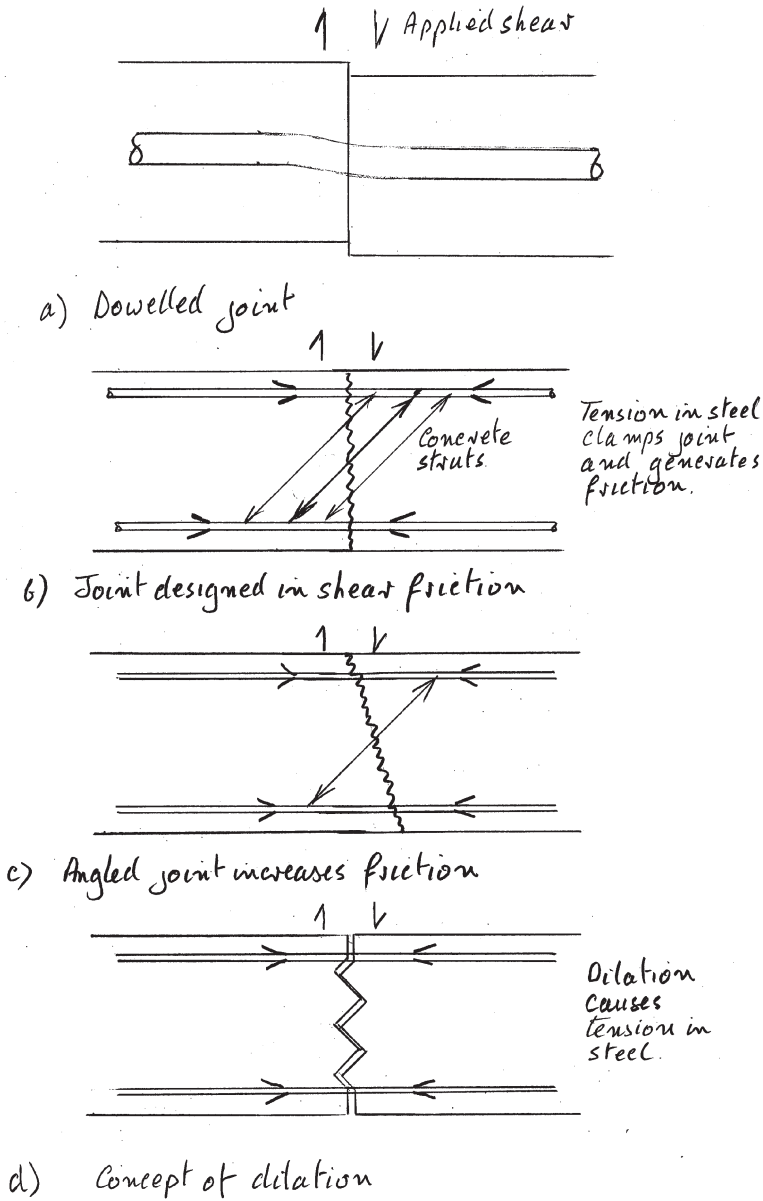 Applied shear
a) Dowelled joint
Concrete
struts.
Tension in steel
clamps joint
and generates
friction.
b) Joint designed in shear friction
c) Angled joint increases friction
Dilation
causes
tension in
steel.
d) Concept of dilation